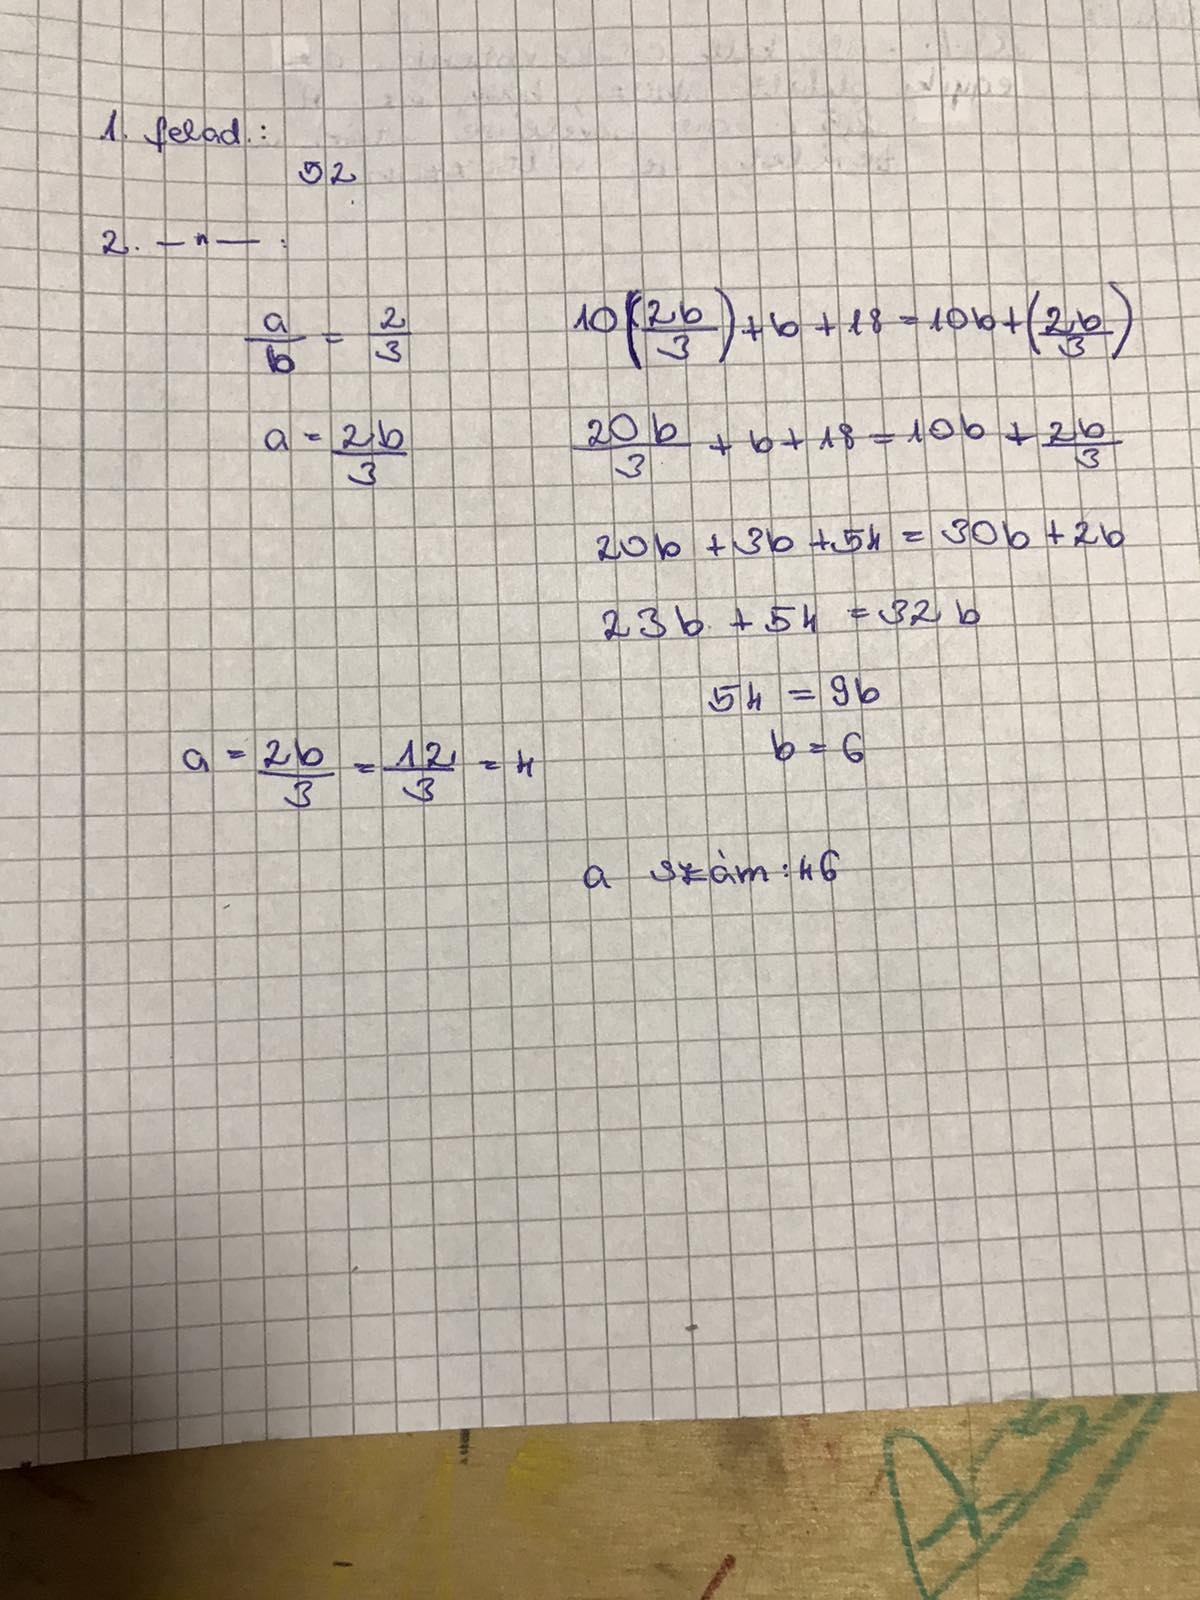 1. felad.:
52
2. —"— :
a/b = 2/3
a = 2b/3
10(2b/3) + b + 18 = 10b + (2b/3)
20b/3 + b + 18 = 10b + 2b/3
20b + 3b + 54 = 30b + 2b
23b + 54 = 32b
54 = 9b
b = 6
a = 2b/3 = 12/3 = 4
a szám: 46